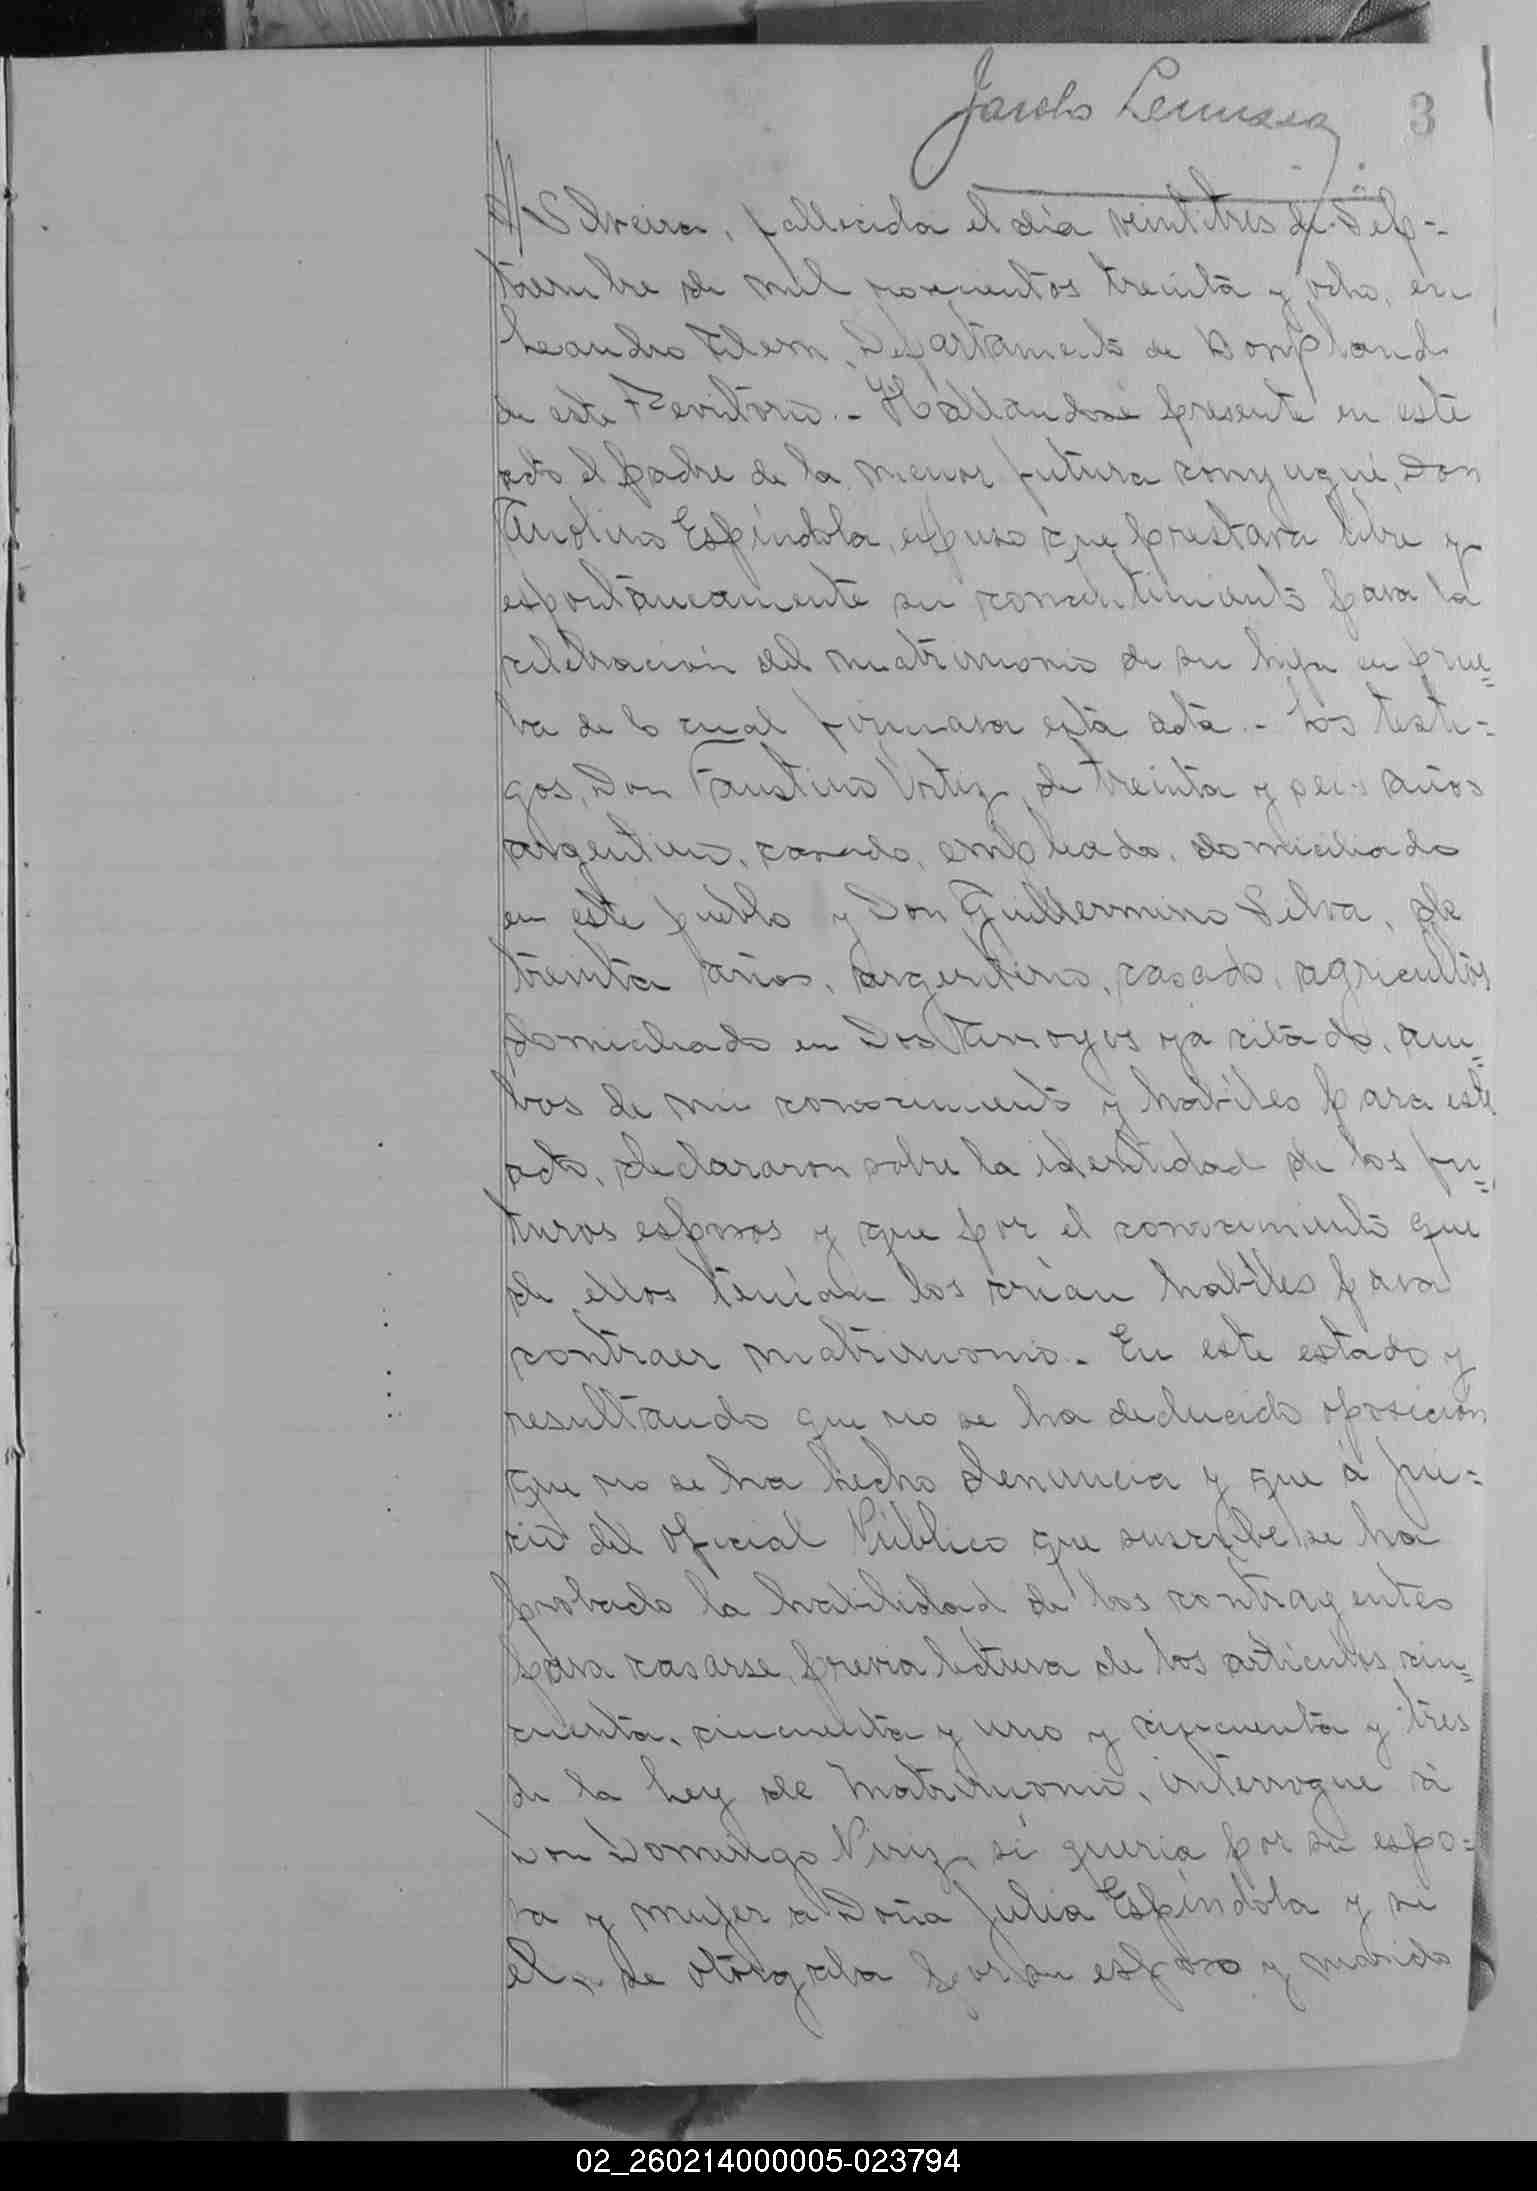 Jacobo
3
Silveira, fallecida el día veintitres de Sep-
tiembre de mil novecientos treinta y ocho, en
Leandro Alem, Departamento de Bompland
de este Territorio.- Hallandose presente en este
acto el padre de la menor futura conyugue, Don
Espíndola, expuso que prestava libre y
espontáneamente su consentimiento para la
celebración del matrimonio de su hija en prue=
ba de lo cual firmara esta acta.- Los testi-
gos, Don Faustino Ortiz, de treinta y seis años
argentino, casado, empleado, domiciliado
en este pueblo y Don Guillermino Silva, de
treinta años, argentino, casado, agricultor
domiciliado en Dos Arroyos ya citado, am=
bos de mi conocimiento y habiles para este
acto, declararon sobre la identidad de los fu=
turos esposos y que por el conocimiento que
de ellos tenían los crían habiles para
contraer matrimonio.- En este estado y
resultando que no se ha deducido oposición
que no se ha hecho denuncia y que á jui=
cio del Oficial Público que suscribe se ha
probado la habilidad de los contrayentes
para casarse, previa lectura de los artículos cin=
cuenta, cincuenta y uno y cincuenta y tres
de la Ley de Matrimonio, interrogue á
Don Domingo Piriz, si quería por su espo=
sa y mujer a Doña Julia Espíndola y si
el se otorgaba por su esposo y marido
02_260214000005-023794